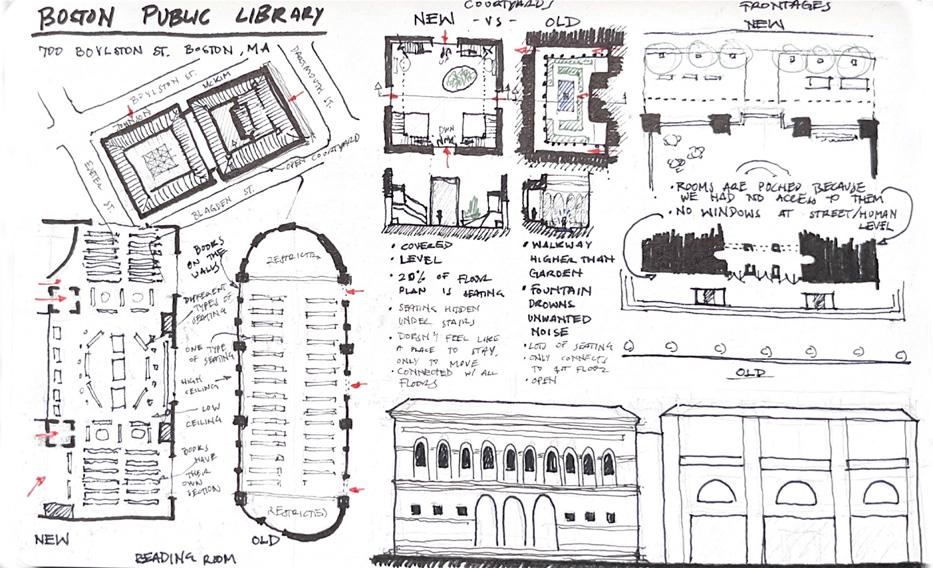 BOSTON PUBLIC LIBRARY
700 BOYLSTON ST. BOSTON, MA
BOYLSTON ST.
DARTMOUTH ST.
JOHNSON
MCKIM
EXETER ST.
BLAGDEN ST.
OPEN COURTYARD
COURTYARDS
NEW - VS - OLD
UP
DWN
• COVERED
• LEVEL
• 20% OF FLOOR
PLAN IS SEATING
• SEATING HIDDEN
UNDER STAIRS
• DOESN'T FEEL LIKE
A PLACE TO STAY,
ONLY TO MOVE
• CONNECTED W/ ALL
FLOORS
• WALKWAY
HIGHER THAN
GARDEN
• FOUNTAIN
DROWNS
UNWANTED
NOISE
• LOTS OF SEATING
• ONLY CONNECTS
TO 1ST FLOOR
• OPEN
FRONTAGES
NEW
• ROOMS ARE POCHED BECAUSE
WE HAD NO ACCESS TO THEM
• NO WINDOWS AT STREET/HUMAN
LEVEL
OLD
BOOKS
ON THE
WALLS
DIFFERENT
TYPES OF
SEATING
ONE TYPE
OF SEATING
HIGH
CEILING
LOW
CEILING
BOOKS
HAVE
THEIR
OWN
SECTION
RESTRICTED
RESTRICTED
NEW
OLD
READING ROOM